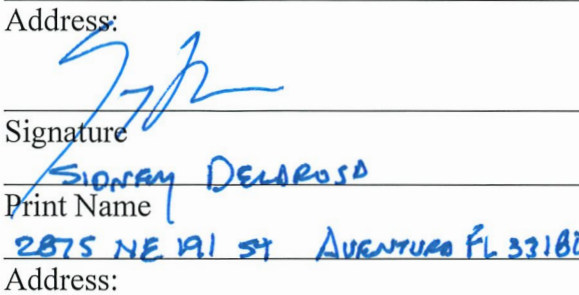 Address:
Signature
SIDNEY DELAROSA
Print Name
2875 NE 191 ST AVENTURA FL 33180
Address: